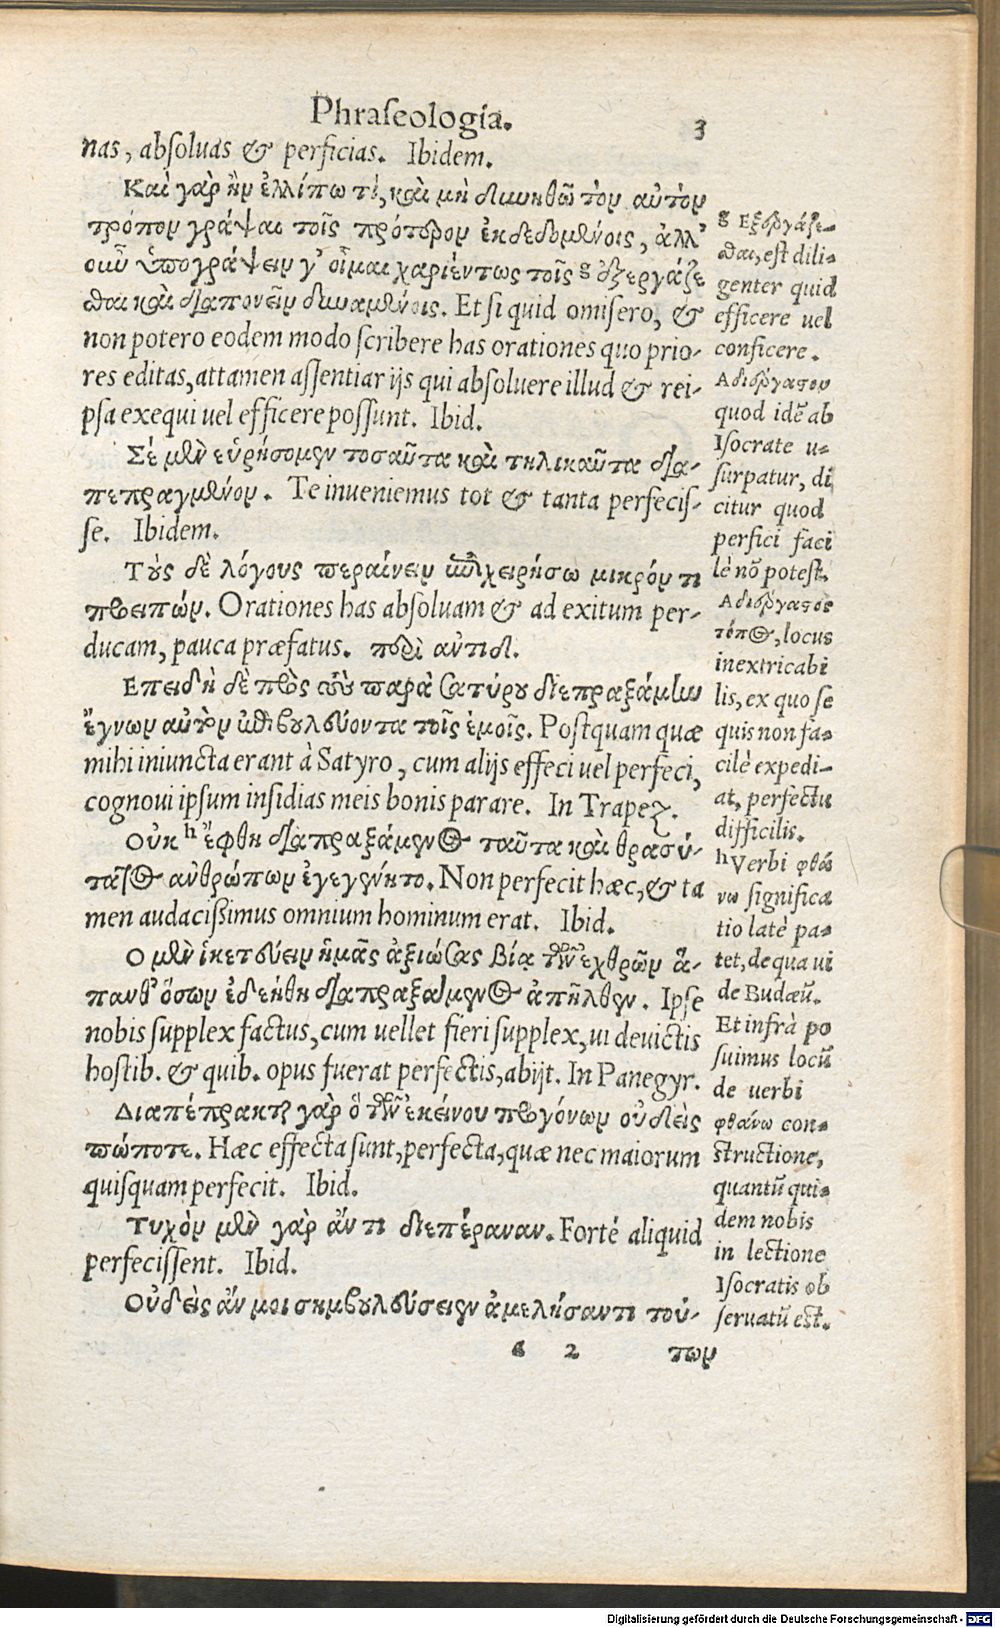 Phraſeologia. 3
nas, abſoluas & perficias. Ibidem.
Καὶ γὰρ ἢν ἐλλίπω τὶ, καὶ μὴ δυνηθῶ τὸν αὐτὸν
τρόπον γράψαι τοῖς πρότερον ἐκδεδομένοις, ἀλλ᾽
οὖν ὑπογράψειν γ᾽ οἶμαι χαριέντως τοῖς g ἐξεργάζε
σθαι καὶ διαπονεῖν δυναμένοις. Et ſi quid omiſero, &
non potero eodem modo ſcribere has orationes quo prio-
res editas, attamen aſſentiar ijs qui abſoluere illud & rei-
pſa exequi uel efficere poſſunt. Ibid.
Σέ μὲν εὑρήσομεν τοσαῦτα καὶ τηλικαῦτα δια-
πεπραγμένον. Te inueniemus tot & tanta perfeciſ-
ſe. Ibidem.
Τοὺς δὲ λόγους περαίνειν ἐπιχειρήσω μικρόν τι
προειπών. Orationes has abſoluam & ad exitum per-
ducam, pauca præfatus. περὶ αντιδ.
Επειδὴ δὲ πρὸς οὓς παρὰ Σατύρου διεπραξάμην
ἔγνων αὐτὸν ἐπιβουλεύοντα τοῖς ἐμοῖς. Poſtquam quæ
mihi iniuncta erant à Satyro, cum alijs effeci uel perfeci,
cognoui ipſum inſidias meis bonis parare. In Trapez.
Οὐκ h ἔφθη διαπραξάμενος ταῦτα καὶ θρασύ-
τατος ανθρώπων ἐγεγένητο. Non perfecit hæc, & ta
men audacißimus omnium hominum erat. Ibid.
Ο μὲν ἱκετεύειν ἡμᾶς ἀξιώσας βίᾳ τῶν ἐχθρῶν ἅ-
πανθ᾽ ὅσων ἐδεήθη διαπραξάμενος ἀπῆλθεν. Ipſe
nobis supplex factus, cum uellet fieri supplex, ui deuictis
hoſtib. & quib. opus fuerat perfectis, abijt. In Panegyr.
Διαπέπρακται γὰρ ὃ τῶν ἐκείνου προγόνων οὐδεὶς
πώποτε. Hæc effecta sunt, perfecta, quæ nec maiorum
quiſquam perfecit. Ibid.
Τυχὸν μὲν γὰρ ἄν τι διεπέραναν. Forté aliquid
perfeciſſent. Ibid.
Οὐδεὶς ἄν μοι συμβουλεύσειεν ἀμελήσαντι τού-
2 των
g Εξεργάζε-
σθαι, eſt dili-
genter quid
efficere uel
conficere.
Αδιέργαστον
quod idẽ ab
Iſocrate u-
ſurpatur, di
citur quod
perfici faci
lè nõ poteſt.
Αδιέργαστος
τόπος, locus
inextricabi
lis, ex quo ſe
quis non fa-
cilè expedi-
at, perfectu
difficilis.
h Verbi φθά
νω ſignifica
tio latè pa-
tet, de qua ui
de Budæũ.
Et infrà po
ſuimus locũ
de uerbi
φθάνω con-
ſtructione,
quantũ qui-
dem nobis
in lectione
Iſocratis ob
ſeruatũ eſt.
Digitalisierung gefördert durch die Deutsche Forschungsgemeinschaft - DFG